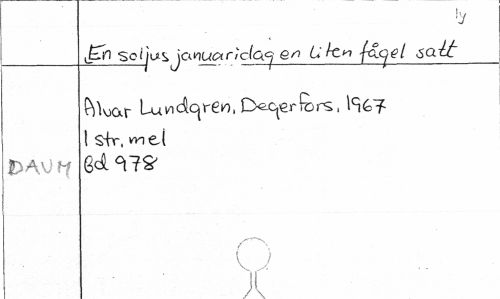 ly
En soljus januaridag en liten fågel satt
Alvar Lundgren, Degerfors, 1967
1 str, mel
DAUM Bd 978